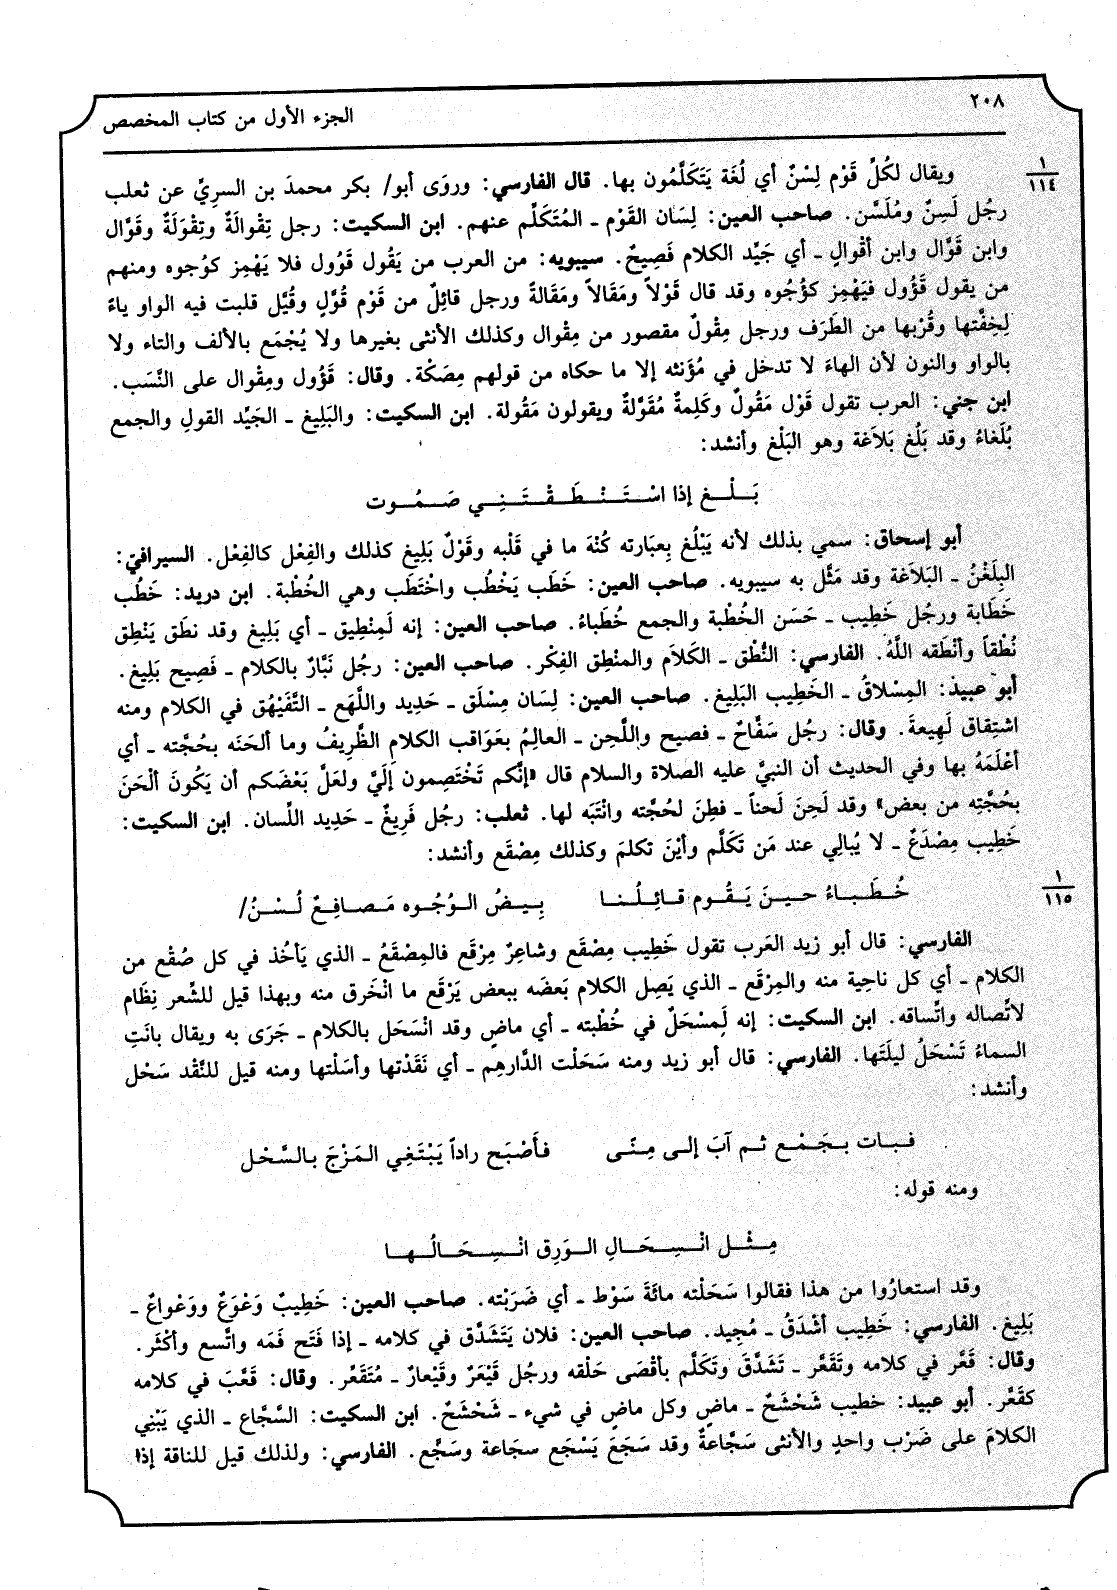 ٢٠٨
الجزء الأول من كتاب المخصص
١
١١٤
ويقال لكُلِّ قَوْم لِسْنٌ أي لُغَة يَتَكَلَّمُون بها. قال الفارسي: وروَى أبو/ بكر محمدَ بن السريِّ عن ثعلب
رجُل لَسِنٌ ومُلَسَّن. صاحب العين: لِسَان القَوْم ـ المُتَكَلِّم عنهم. ابن السكيت: رجل تِقْوالَةٌ وتِقْوَلَةٌ وقَوَّال
وابن قَوَّال وابن أقْوالٍ ـ أي جَيِّد الكلام فَصِيحٌ. سيبويه: من العرب من يَقُول قَوُول فلا يَهْمِز كوُجوه ومنهم
من يقول قَؤُول فيَهْمِز كؤُجُوه وقد قال قَوْلاً ومَقَالاً ومَقَالةً ورجل قائِلٌ من قَوْم قُوَّلٍ وقُيَّل قلبت فيه الواو ياءً
لِخِفَّتها وقُرْبها من الطَرَف ورجل مِقْولٌ مقصور من مِقْوال وكذلك الأنثى بغيرها ولا يُجْمَع بالألف والتاء ولا
بالواو والنون لأن الهاءَ لا تدخل في مُؤَنثه إلا ما حكاه من قولهم مِصَكّة. وقال: قَؤُول ومِقْوال على النَّسَب.
ابن جني: العرب تقول قَوْل مَقُولٌ وكَلِمةٌ مُقَوَّلةٌ ويقولون مَقُولة. ابن السكيت: والبَلِيغ ـ الجَيِّد القولِ والجمع
بُلَغاءُ وقد بَلُغ بَلاَغة وهو البَلْغ وأنشد:
بَـلْـغ إذا اسْـتَـنْـطَـقْـتَـنِـي صَـمُـوت
أبو إسحاق: سمي بذلك لأنه يَبْلُغ بِعبارته كُنْهَ ما في قَلْبه وقَوْلٌ بَلِيغ كذلك والفِعْل كالفِعْل. السيرافي:
البِلَغْنُ ـ البَلاَغة وقد مَثَّل به سيبويه. صاحب العين: خَطَب يَخْطُب واخْتَطَب وهي الخُطْبة. ابن دريد: خَطُب
خَطَابة ورجُل خَطِيب ـ حَسَن الخُطْبة والجمع خُطَباءُ. صاحب العين: إنه لَمِنْطِيق ـ أي بَلِيغ وقد نطَق يَنْطِق
نُطْقاً وأنْطَقه اللَّهُ. الفارسي: النُّطْق ـ الكَلاَم والمنْطِق الفِكْر. صاحب العين: رجُل نَبَّارٌ بالكلام ـ فَصِيح بَلِيغ.
أبو عبيد: المِسْلاقُ ـ الخَطِيب البَلِيغ. صاحب العين: لِسَان مِسْلَق ـ حَدِيد واللَّهَع ـ التَّفَيْهُق في الكلام ومنه
اشتِقاق لَهِيعةَ. وقال: رجُل سَفَّاحٌ ـ فصيح واللَّحِن ـ العالِمُ بعَوَاقب الكلامِ الظَّرِيفُ وما ألحَنَه بحُجَّته ـ أي
أعْلَمَهُ بها وفي الحديث أن النبيَّ عليه الصلاة والسلام قال «إنَّكم تَخْتَصِمون إلَيَّ ولعَلَّ بَعْضَكم أن يَكُونَ ألْحَنَ
بحُجَّتِه من بعض» وقد لَحِنَ لَحناً ـ فطِنَ لحُجَّته وانْتَبَه لها. ثعلب: رجُل فَرِيغٌ ـ حَدِيد اللِّسان. ابن السكيت:
خَطِيب مِصْدَعٌ ـ لا يُبالِي عند مَن تَكَلَّم وأيْنَ تكلمَ وكذلك مِصْقَع وأنشد:
خُـطَـبـاءُ حـيـنَ يَـقُـوم قـائِـلُـنـا بِـيـضُ الـوُجُـوه مَـصـاقِـعٌ لُـسْـنُ/
١
١١٥
الفارسي: قال أبو زيد العَرب تقول خَطِيب مِصْقَع وشاعِرٌ مِرْقَع فالمِصْقَعُ ـ الذي يَأخُذ في كل صُقْع من
الكلام ـ أي كل ناحِية منه والمِرْقَع ـ الذي يَصِل الكلام بَعضَه ببعض يَرْقَع ما انْخَرق منه وبهذا قيل للشِّعر نِظَام
لاتِّصاله واتِّساقه. ابن السكيت: إنه لَمِسْحَلٌ في خُطْبته ـ أي ماضٍ وقد انْسَحَل بالكلام ـ جَرَى به ويقال بانَتِ
السماءُ تَسْحَلُ ليلَتَها. الفارسي: قال أبو زيد ومنه سَحَلْت الدَّارهِم ـ أي نَقَدْتها وأسَلْتها ومنه قيل للنَّقْد سَحْل
وأنشد:
فـبـات بـجَـمْـع ثـم آبَ إلـى مِـنًـى فأَصْبَح راداً يَبْتَغِي الـمَزْجَ بـالسَّحْل
ومنه قوله:
مِـثْـل انْـسِـحَـالِ الـوَرِق انْـسِـحَـالُـهـا
وقد استعارُوا من هذا فقالوا سَحَلْته مائَةَ سَوْط ـ أي ضَرَبْته. صاحب العين: خَطِيبٌ وَعْوَعٌ ووَعْواعٌ ـ
بَلِيغ. الفارسي: خَطِيب أشْدَقُ ـ مُجِيد. صاحب العين: فلان يَتَشَدَّق في كلامه ـ إذا فَتَح فَمَه واتَّسع وأكْثَر.
وقال: قَعَّر في كلامه وتَقَعَّر ـ تَشَدَّقَ وتَكَلَّم بأقْصَى حَلْقه ورجُل قَيْعَرٌ وقَيْعارٌ ـ مُتَقَعِّر. وقال: قَعَّبَ في كلامه
كقَعَّر. أبو عبيد: خطيب شَحْشَحٌ ـ ماضٍ وكل ماضٍ في شيء ـ شَحْشَحٌ. ابن السكيت: السَّجَّاع ـ الذي يَبْنِي
الكلامَ على ضَرْب واحدٍ والأنثى سَجَّاعةٌ وقد سَجَعَ يَسْجَع سجَاعة وسَجَّع. الفارسي: ولذلك قيل للناقة إذا